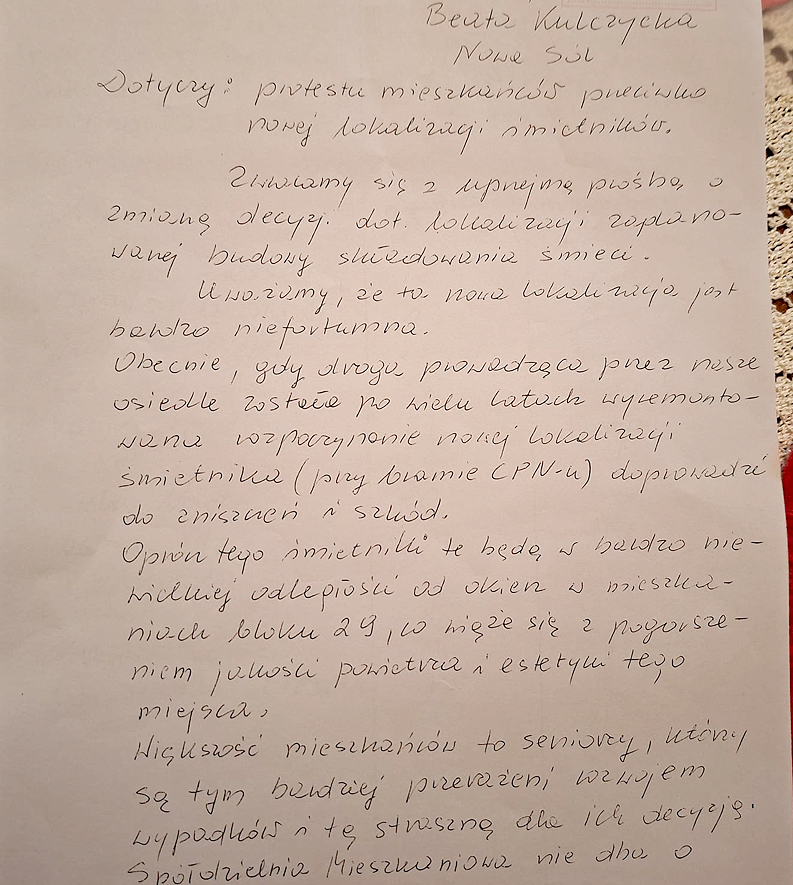 Beata Kulczycka
Nowa Sól
Dotyczy: protestu mieszkańców przeciwko
nowej lokalizacji śmietników.
Zwracamy się z uprzejmą prośbą o
zmianę decyzj. dot. lokalizacji zaplano-
wanej budowy składowania śmieci.
Uważamy, że ta nowa lokalizacja jest
bardzo niefortunna.
Obecnie, gdy droga prowadząca przez nasze
osiedle została po wielu latach wyremonto-
wana rozpoczynanie nowej lokalizacji
śmietnika (przy bramie CPN-u) doprowadzi
do zniszczeń i szkód.
Oprócz tego śmietniki te będą w bardzo nie-
wielkiej odległości od okien w mieszka-
niach bloku 29, co wiąże się z pogorsze-
niem jakości powietrza i estetyki tego
miejsca.
Większość mieszkańców to seniorzy, którzy
są tym bardziej przerażeni rozwojem
wypadków i tą straszną dla ich decyzją.
Spółdzielnia Mieszkaniowa nie dba o